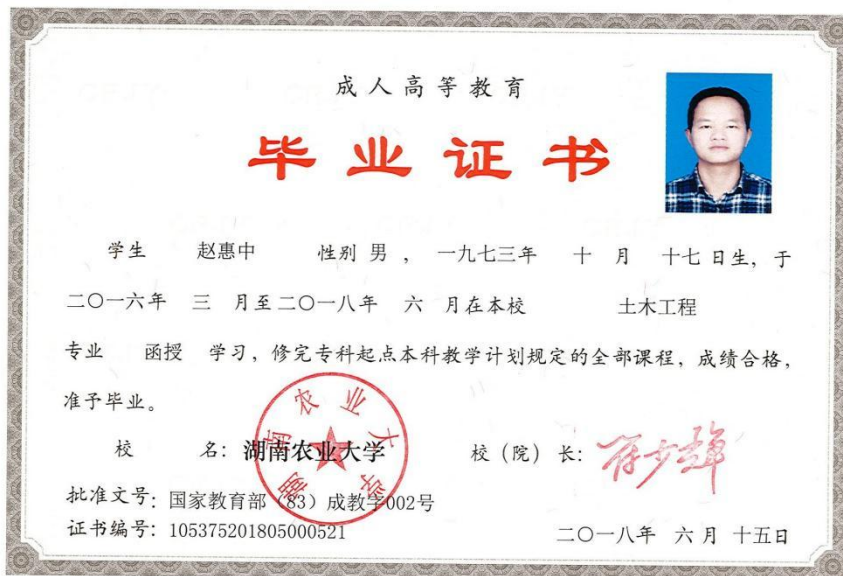 成人高等教育
毕业证书
学生 赵惠中 性别 男 , 一九七三年 十 月 十七 日生, 于
二〇一六年 三 月至二〇一八年 六 月在本校 土木工程
专业 函授 学习, 修完专科起点本科教学计划规定的全部课程, 成绩合格,
准予毕业。
校 名: 湖南农业大学 校 (院) 长:
湖南农业大学
批准文号: 国家教育部 (83) 成教字002号
证书编号: 105375201805000521
二〇一八年 六 月 十五日